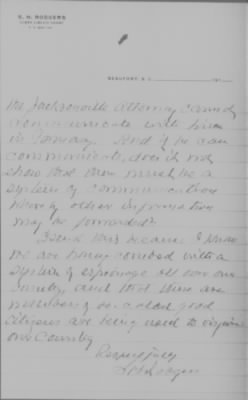 S. H. RODGERS
BEAUFORT, S. C. 191
the Jacksonville Attorney cannot
communicate with him
in Germany. And if he can
communicate, does it not
show that there must be a
system of communication
whereby other information
may be forwarded?
I send this because I know
we are honey combed with a
system of espionage all over our
country, and that there are
numbers of so called good
citizens are being used to
our Country
Respectfully